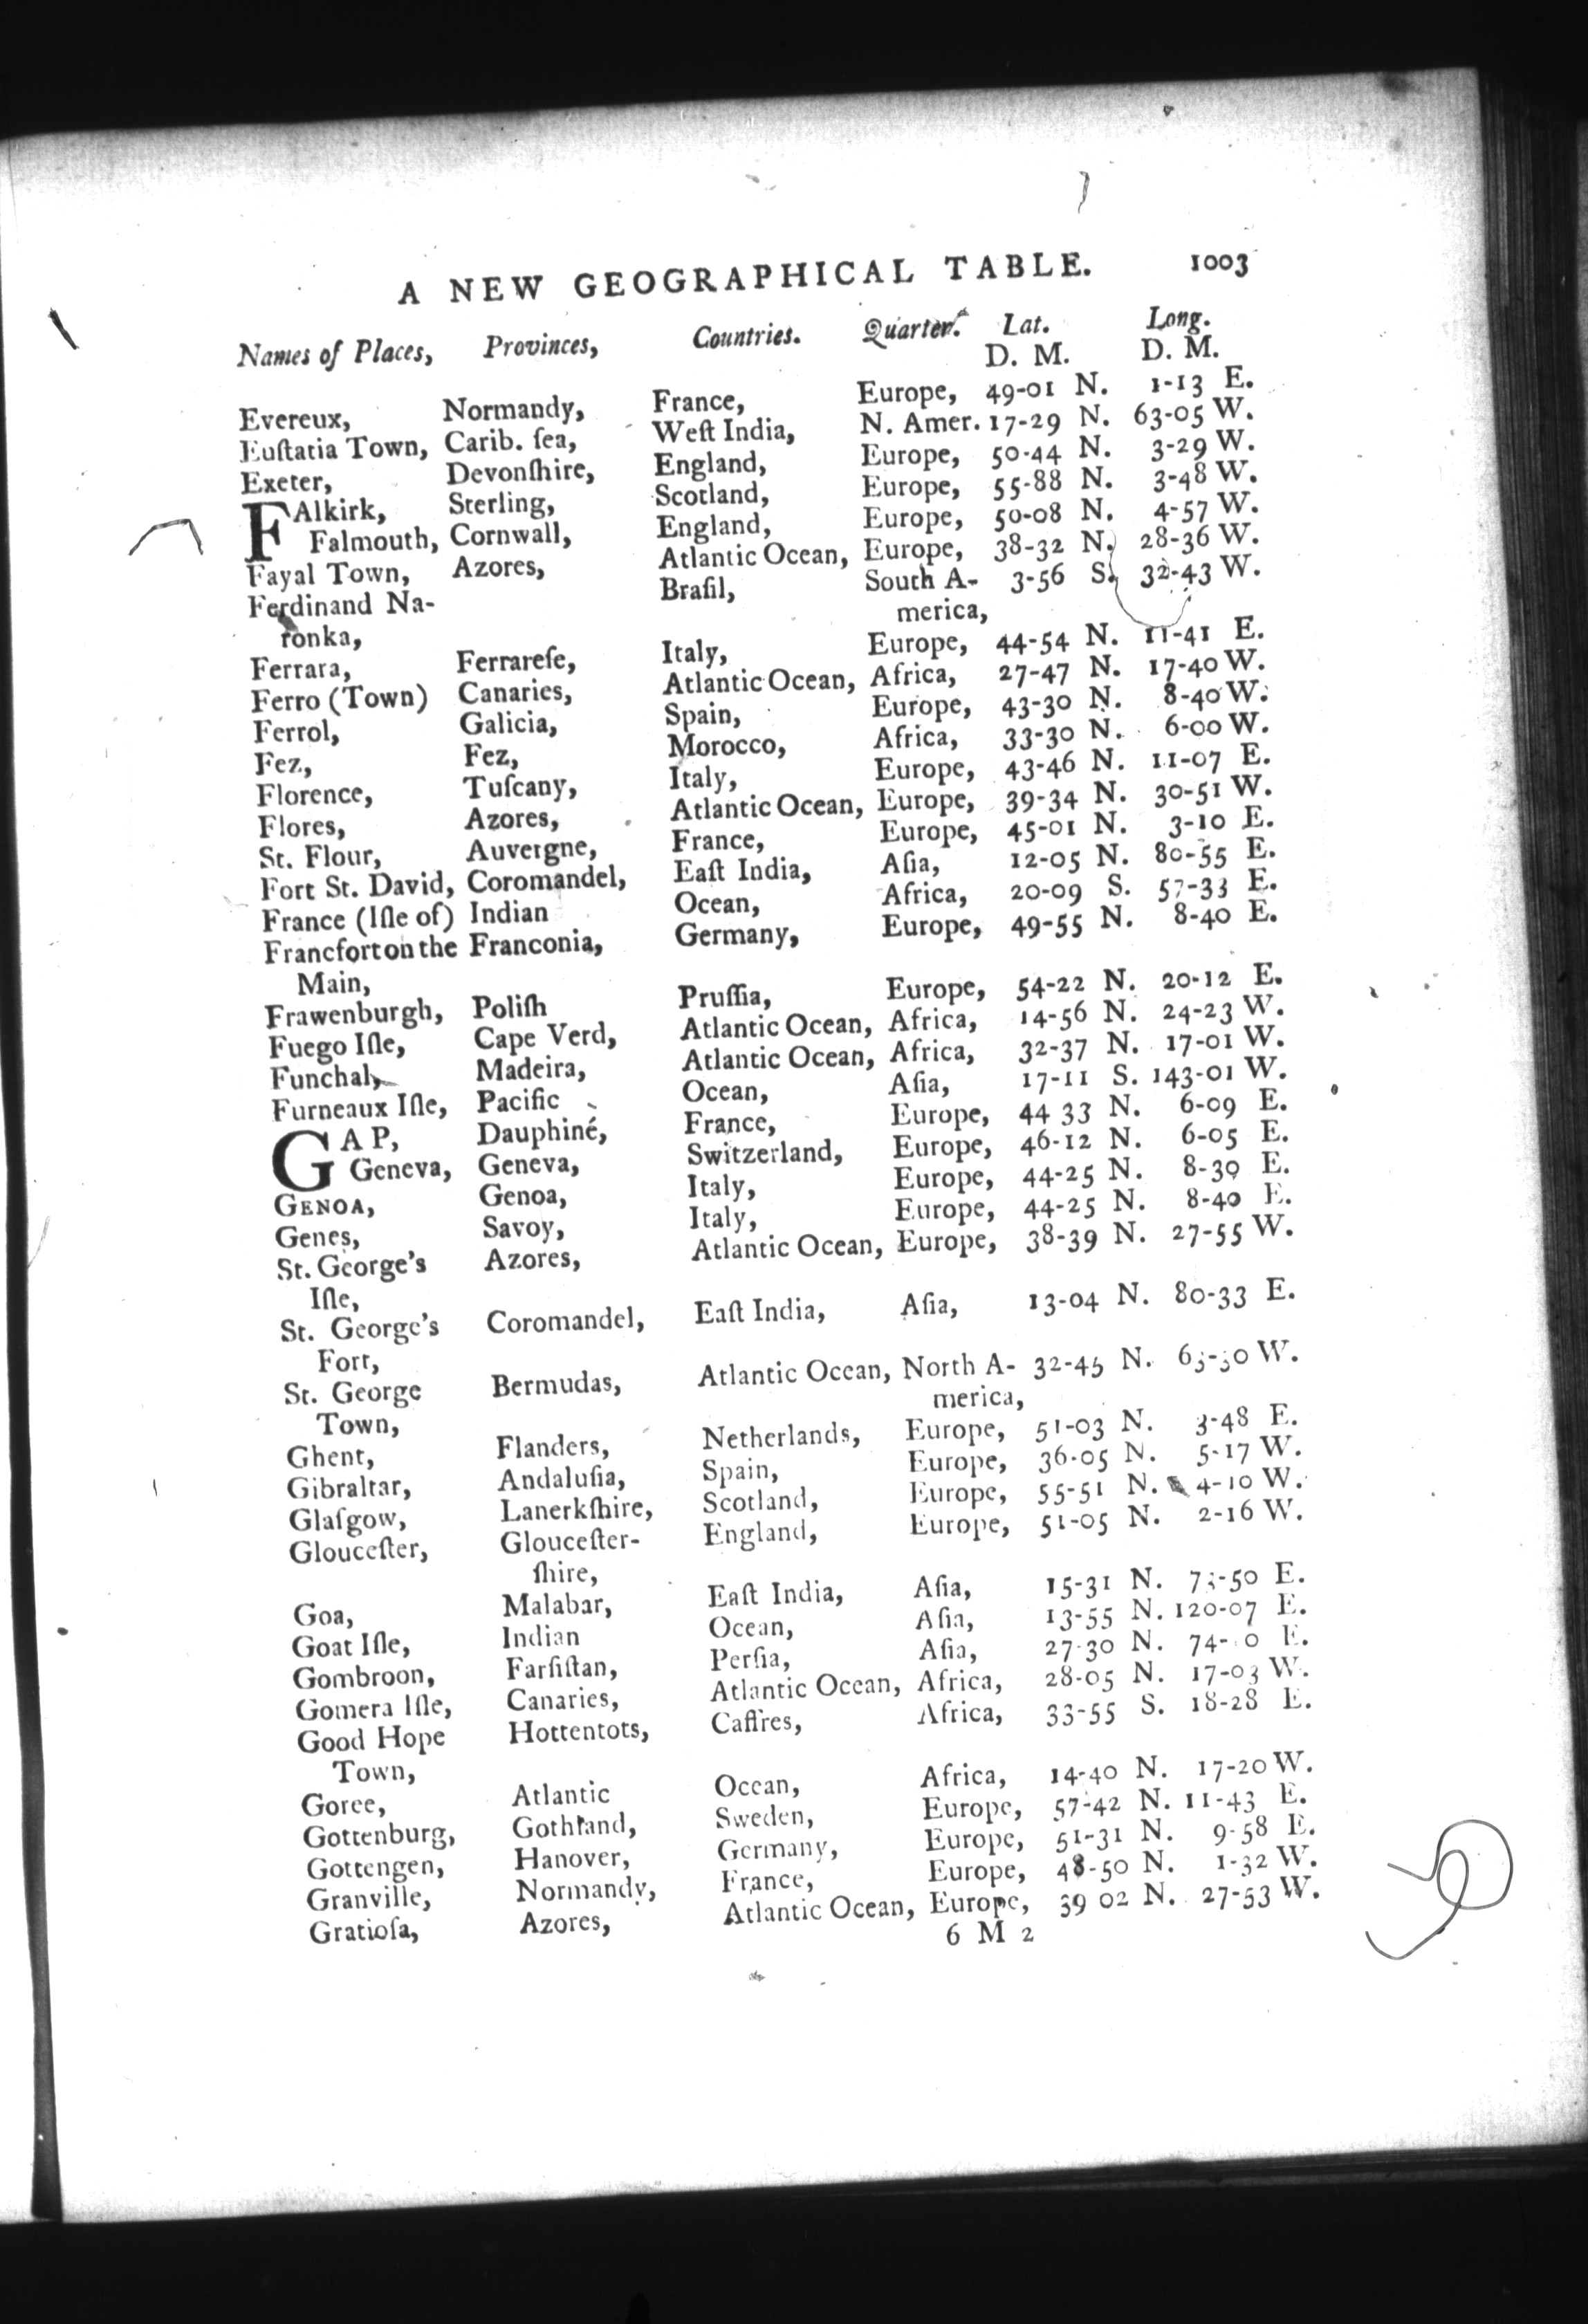 A NEW GEOGRAPHICAL TABLE. 1003
Names of Places, Provinces, Countries. Quarter. Lat. Long.
D. M. D. M.
Evereux, Normandy, France, Europe, 49-01 N. 1-13 E.
Euſtatia Town, Carib. ſea, Weſt India, N. Amer. 17-29 N. 63-05 W.
Exeter, Devonſhire, England, Europe, 50-44 N. 3-29 W.
FAlkirk, Sterling, Scotland, Europe, 55-88 N. 3-48 W.
Falmouth, Cornwall, England, Europe, 50-08 N. 4-57 W.
Fayal Town, Azores, Atlantic Ocean, Europe, 38-32 N. 28-36 W.
Ferdinand Na- Braſil, South A- 3-56 S. 32-43 W.
ronka, merica,
Ferrara, Ferrareſe, Italy, Europe, 44-54 N. 11-41 E.
Ferro (Town) Canaries, Atlantic Ocean, Africa, 27-47 N. 17-40 W.
Ferrol, Galicia, Spain, Europe, 43-30 N. 8-40 W.
Fez, Fez, Morocco, Africa, 33-30 N. 6-00 W.
Florence, Tuſcany, Italy, Europe, 43-46 N. 11-07 E.
Flores, Azores, Atlantic Ocean, Europe, 39-34 N. 30-51 W.
St. Flour, Auvergne, France, Europe, 45-01 N. 3-10 E.
Fort St. David, Coromandel, Eaſt India, Aſia, 12-05 N. 80-55 E.
France (Iſle of) Indian Ocean, Africa, 20-09 S. 57-33 E.
Francfort on the Franconia, Germany, Europe, 49-55 N. 8-40 E.
Main,
Frawenburgh, Poliſh Pruſſia, Europe, 54-22 N. 20-12 E.
Fuego Iſle, Cape Verd, Atlantic Ocean, Africa, 14-56 N. 24-23 W.
Funchal, Madeira, Atlantic Ocean, Africa, 32-37 N. 17-01 W.
Furneaux Iſle, Pacific Ocean, Aſia, 17-11 S. 143-01 W.
GAP, Dauphiné, France, Europe, 44 33 N. 6-09 E.
Geneva, Geneva, Switzerland, Europe, 46-12 N. 6-05 E.
GENOA, Genoa, Italy, Europe, 44-25 N. 8-30 E.
Genes, Savoy, Italy, Europe, 44-25 N. 8-40 E.
St. George's Azores, Atlantic Ocean, Europe, 38-39 N. 27-55 W.
Iſle,
St. George's Coromandel, Eaſt India, Aſia, 13-04 N. 80-33 E.
Fort,
St. George Bermudas, Atlantic Ocean, North A- 32-45 N. W.
Town, merica,
Ghent, Flanders, Netherlands, Europe, 51-03 N. 3-48 E.
Gibraltar, Andaluſia, Spain, Europe, 36-05 N. 5-17 W.
Glaſgow, Lanerkſhire, Scotland, Europe, 55-51 N. 4-10 W.
Glouceſter, Glouceſter- England, Europe, 51-05 N. 2-16 W.
ſhire,
Goa, Malabar, Eaſt India, Aſia, 15-31 N. 73-50 E.
Goat Iſle, Indian Ocean, Aſia, 13-55 N. 120-07 E.
Gombroon, Farſiſtan, Perſia, Aſia, 27-30 N. E.
Gomera Iſle, Canaries, Atlantic Ocean, Africa, 28-05 N. 17-03 W.
Good Hope Hottentots, Caffres, Africa, 33-55 S. 18-28 E.
Town,
Goree, Atlantic Ocean, Africa, 14-40 N. 17-20 W.
Gottenburg, Gothland, Sweden, Europe, 57-42 N. 11-43 E.
Gottengen, Hanover, Germany, Europe, 51-31 N. 9-58 E.
Granville, Normandy, France, Europe, 48-50 N. 1-32 W.
Gratioſa, Azores, Atlantic Ocean, Europe, 39 02 N. 27-53 W.
6 M 2